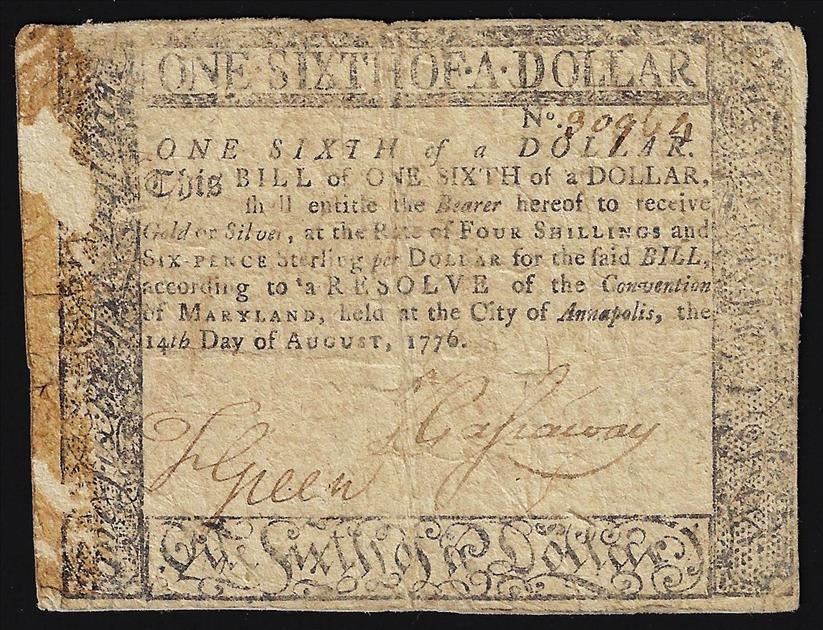 ONE·SIXTH·OF·A·DOLLAR
No. 30964
ONE SIXTH of a DOLLAR.
This BILL of ONE SIXTH of a DOLLAR,
ſhall entitle the Bearer hereof to receive
Gold or Silver, at the Rate of FOUR SHILLINGS and
SIX-PENCE Sterling per DOLLAR for the ſaid BILL,
according to a RESOLVE of the Convention
of MARYLAND, held at the City of Annapolis, the
14th Day of AUGUST, 1776.
Green
One Sixth of a Dollar